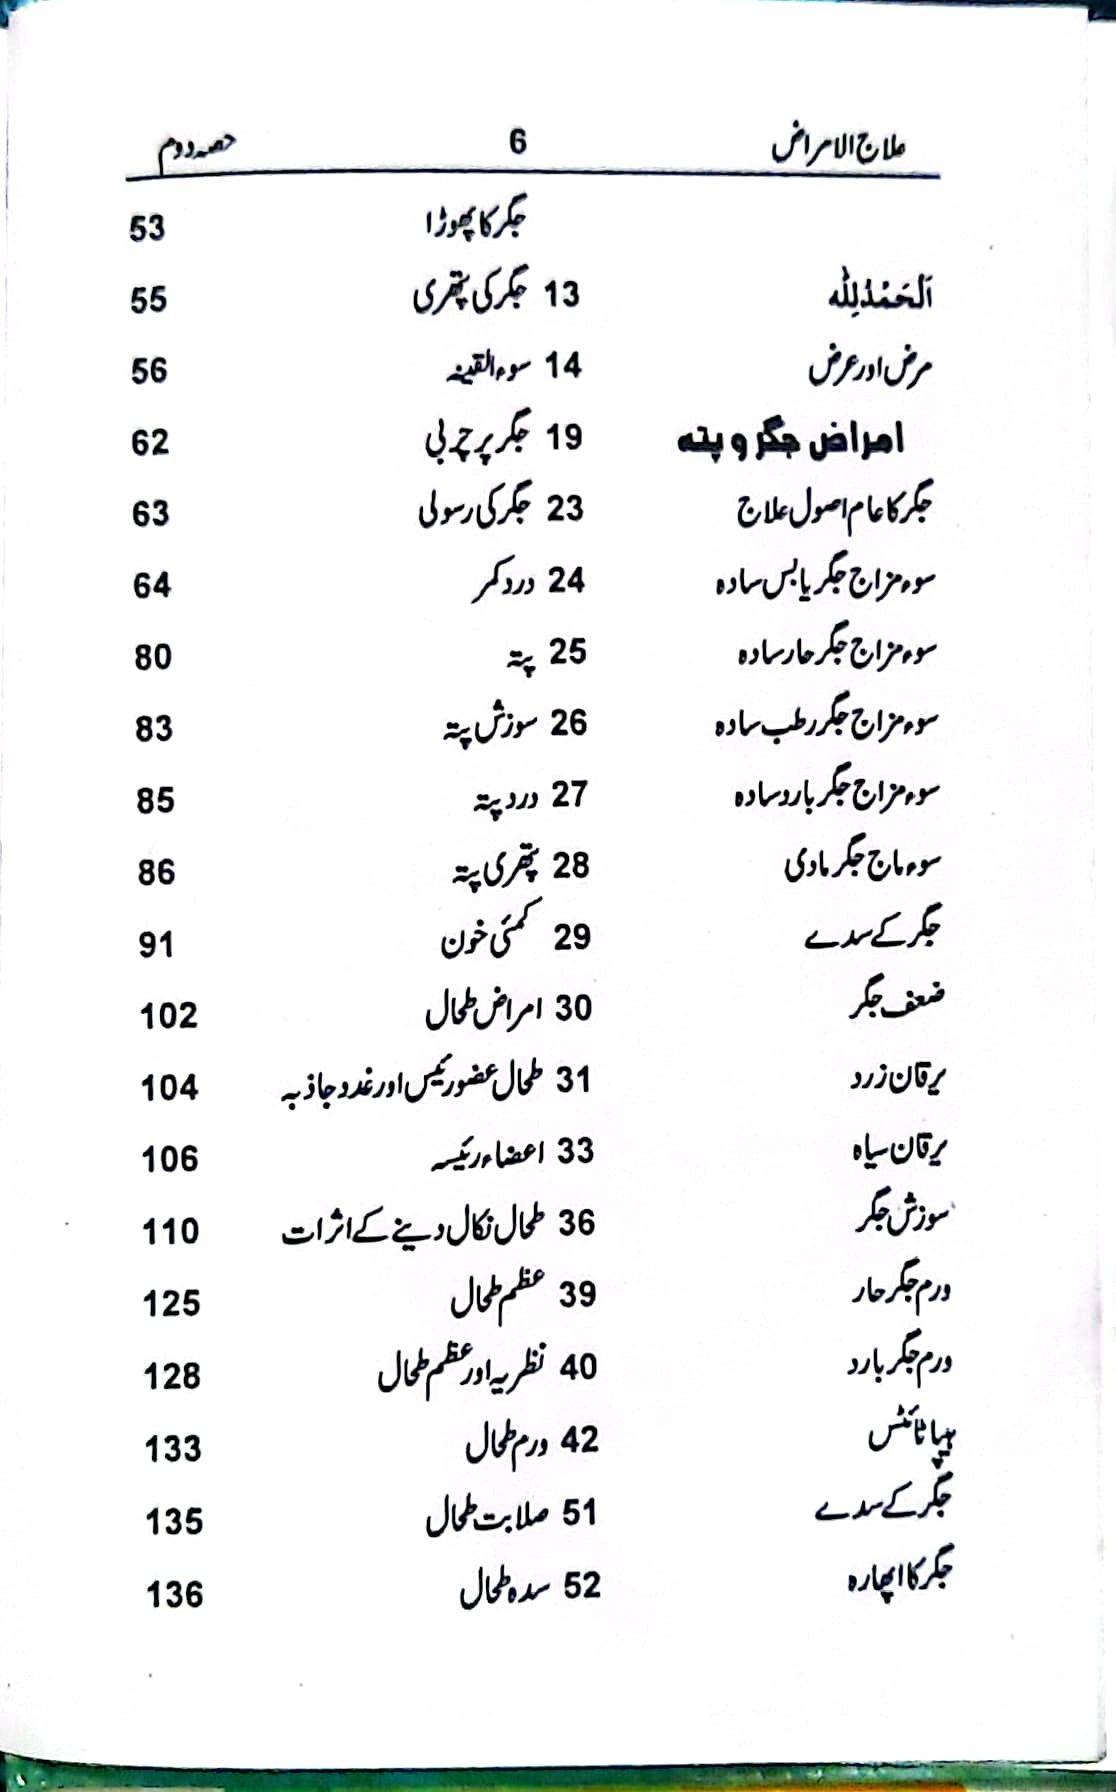 علاج الامراض 6 حصہ دوم
جگر کا پھوڑا 53
اَلْحَمْدُلِلّٰہ 13 جگر کی پتھری 55
مرض اور عرض 14 سوء القینہ 56
امراض جگر و پتہ 19 جگر پر چربی 62
جگر کا عام اصول علاج 23 جگر کی رسولی 63
سوء مزاج جگر یابس سادہ 24 درد کمر 64
سوء مزاج جگر حار سادہ 25 پتہ 80
سوء مزاج جگر رطب سادہ 26 سوزش پتہ 83
سوء مزاج جگر بارد سادہ 27 درد پتہ 85
سوء ماج جگر مادی 28 پتھری پتہ 86
جگر کے سدے 29 کمئی خون 91
ضعف جگر 30 امراض طحال 102
یرقان زرد 31 طحال عضو رئیس اور غدد جاذبہ 104
یرقان سیاہ 33 اعضاء رئیسہ 106
سوزش جگر 36 طحال نکال دینے کے اثرات 110
ورم جگر حار 39 عظم طحال 125
ورم جگر بارد 40 نظریہ اور عظم طحال 128
ہیپاٹائٹس 42 ورم طحال 133
جگر کے سدے 51 صلابت طحال 135
جگر کا اپھارہ 52 سدہ طحال 136